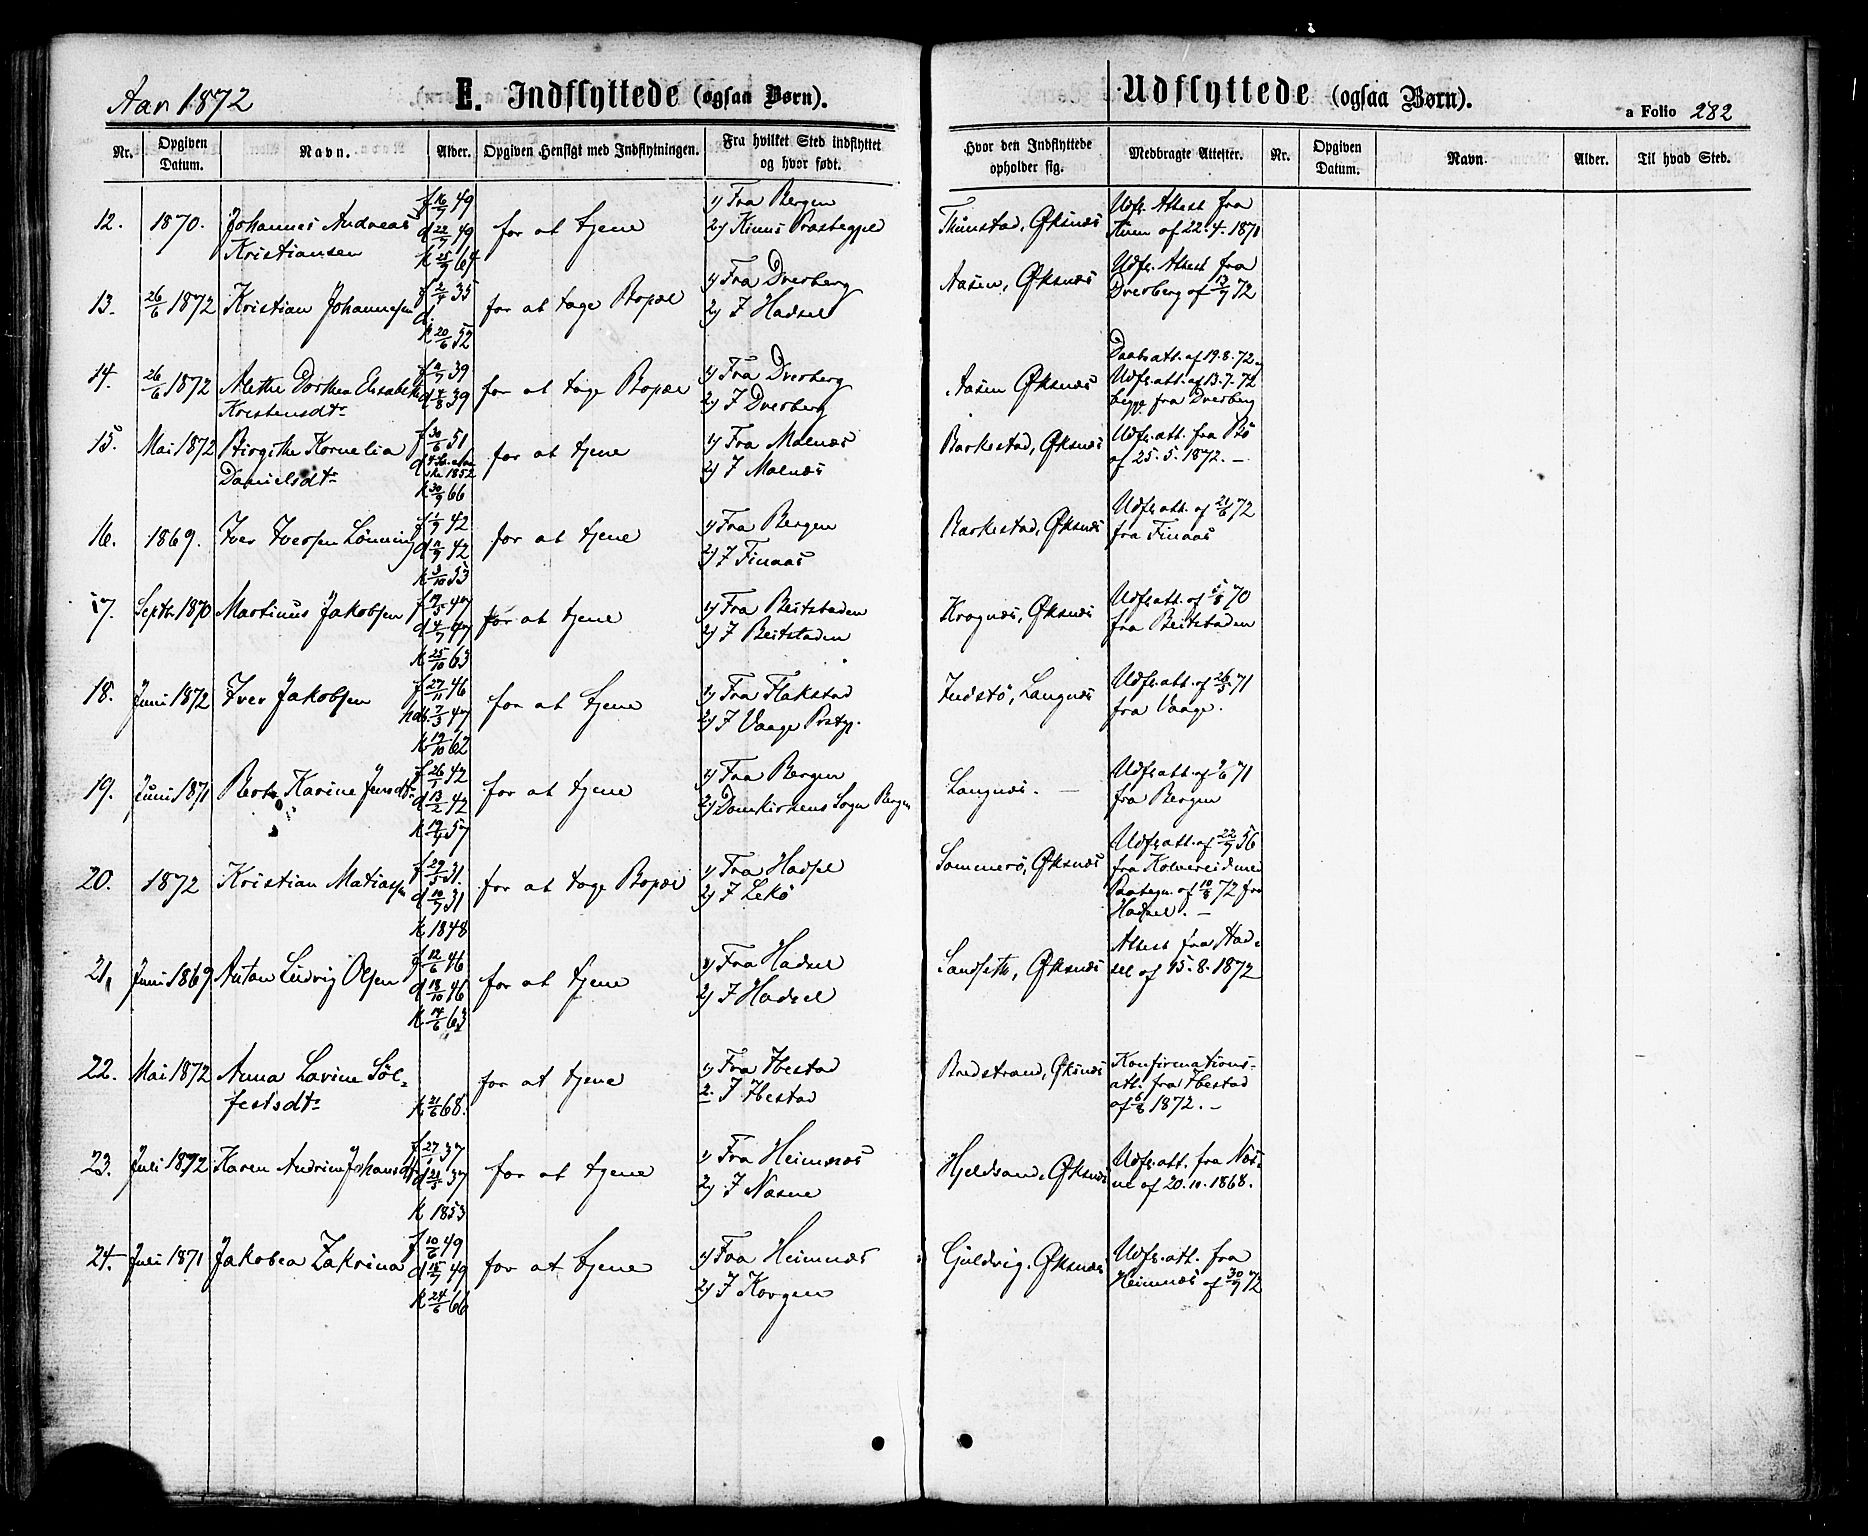 Aar 1872
E. Indflyttede (ogsaa Børn).
Nr. Opgiven Datum. Navn. Alder. Opgiven Hensigt med Indflytningen. Fra hvilket Sted indflyttet og hvor født.
12. 1870. Johannes Andreas Kristiansen f 16/7 49 d 22/7 49 k 25/9 64 for at tjene 1) Fra Bergen 2) Kinns
13. 26/6 1872 Kristian Johannesen f 2/4 35 d. k 20/6 52 for at tage Bopæl 1) Fra Dverberg 2) I Hadsel
14. 26/6 1872 Alethe Dorthea Elisabeth Kristensdtr 39 d 4/8 39 for at tage Bopæl 1) Fra Dverberg 2) I Dverberg
15. Mai 1872 Birgithe Kornelia Danielsdtr f 30/6 51 1852 k 30/9 66 for at tjene 1) Fra Malnæs 2) I Malnæs
16. 1869. Iver Iversen Lønning 42 42 k 3/10 53 for at tjene 1) Fra Bergen 2) I Finaas
17. Septr. 1870 Martinus Jakobsen f 19/5 47 d 4/7 47 k 25/10 63 for at tjene 1) Fra Beitstaden 2) I Beitstaden
18. Juni 1872 Iver Jakobsen f 27/11 46 hdb. 7/3 47 k 19/10 62 for at tjene 1) Fra Flakstad 2) I Vaage Prstgj.
19. Juni 1871 Berte Karine Jensdtr f 26/1 42 d 13/2 42 57 for at tjene 1) Fra Bergen 2) Domkirkens Sogn Bergen
20. 1872 Kristian Matiassen f 29/5 31. d 10/7 31 k 1848 for at tage Bopæl 1) Fra Hadsel 2) I Lekø
21, Juni 1869 Anton Ludvig Olsen f 12/6 46 d 18/10 46 k 14/6 63 for at tjene 1) Fra Hadsel 2) I Hadsel
22. Mai 1872 Anna Lavine Sölfestsdtr k 21/6 68. for at tjene 1) Fra Ibestad 2. I Ibestad
23. Juli 1872 Karen Andrine Johansdtr f 27/1 37 37 k 1853 for at tjene 1) Fra Heimnæs 2) I Næsne
24. Juli 1871 Jakobea Zakrina f 10/6 49 d 15/7 49 k 24/6 66 for at tjene 1) Fra Heimnæs 2) I Korgen
Udflyttede (ogsaa Børn).
a Folio 282
Hvor den Indflyttede opholder sig. Medbragte Attester. Nr. Opgiven Datum. Navn. Alder. Til hvad Sted.
Tunstad, Øksnæs Udfl. Attest fra Kinn af 22.4.1871
Aasen, Øksnæs Udfl. Attest fra Dverberg af 13/7 72
Aasen Øksnæs Daabsatt. af 19.8.72. Udfl. att. af 13.7.72 begge fra Dverberg
Barkestad, Øksnæs Udfl. att. fra Bö af 25.5.1872. –
Barkestad, Øksnæs Udfl. att. af 21/6 72 fra Finaas
Kragnæs, Øksnæs Udfl. att. af 5/8 70 fra Beitstaden
Langnæs Udfl. att. af 26/5 71 fra Vaage.
Langnæs. – Udfl. att. af 71 fra Bergen
Sommerö, Øksnæs Udfl. att. af 22/7 56 fra Kolvereid med Paategn. af 10/8 72 fra Hadsel. –
Sandseth, Øksnæs Attest fra Hadsel af 15.8.1872
Bredstrand, Øksnæs Konfirmationsatt. fra Ibestad af 6/8 1872. –
Hjeldsand, Øksnæs Udfl. att. fra Næsne af 20.10.1868.
Gjuldvig. Øksnæs Udfl. att. fra Heimnæs af 30/7 72